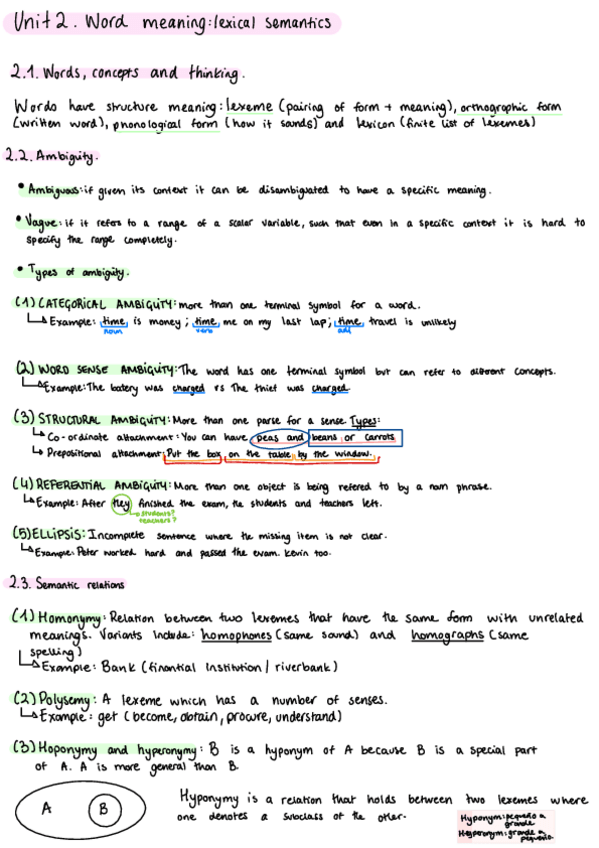 Unit 2. Word meaning: lexical semantics
2.1. Words, concepts and thinking.
Words have structure meaning: lexeme (pairing of form + meaning), orthographic form
(written word), phonological form (how it sounds) and lexicon (finite list of lexemes)
2.2. Ambiguity.
• Ambiguous: if given its context it can be disambiguated to have a specific meaning.
• Vague: if it refers to a range of a scalar variable, such that even in a specific context it is hard to
specify the range completely.
• Types of ambiguity.
(1) CATEGORICAL AMBIGUITY: more than one terminal symbol for a word.
↳ Example: time is money; time me on my last lap; time travel is unlikely
noun verb adj
(2) WORD SENSE AMBIGUITY: The word has one terminal symbol but can refer to different concepts.
↳ Example: The batery was charged vs The thief was charged.
(3) STRUCTURAL AMBIGUITY: More than one parse for a sense. Types:
↳ Co-ordinate attachment: You can have peas and beans or carrots
↳ Prepositional attachment: Put the box on the table by the window.
(4) REFERENTIAL AMBIGUITY: More than one object is being refered to by a noun phrase.
↳ Example: After they finished the exam, the students and teachers left.
↳ students?
teachers?
(5) ELLIPSIS: Incomplete sentence where the missing item is not clear.
↳ Example: Peter worked hard and passed the exam. Kevin too.
2.3. Semantic relations
(1) Homonymy: Relation between two lexemes that have the same form with unrelated
meanings. Variants include: homophones (same sound) and homographs (same
spelling)
↳ Example: Bank (finantial institution / riverbank)
(2) Polysemy: A lexeme which has a number of senses.
↳ Example: get (become, obtain, procure, understand)
(3) Hoponymy and hyperonymy: B is a hyponym of A because B is a special part
of A. A is more general than B.
A B
Hyponymy is a relation that holds between two lexemes where
one denotes a subclass of the other.
Hyponym: pequeño a
grande
Hyperonym: grande a
pequeño.